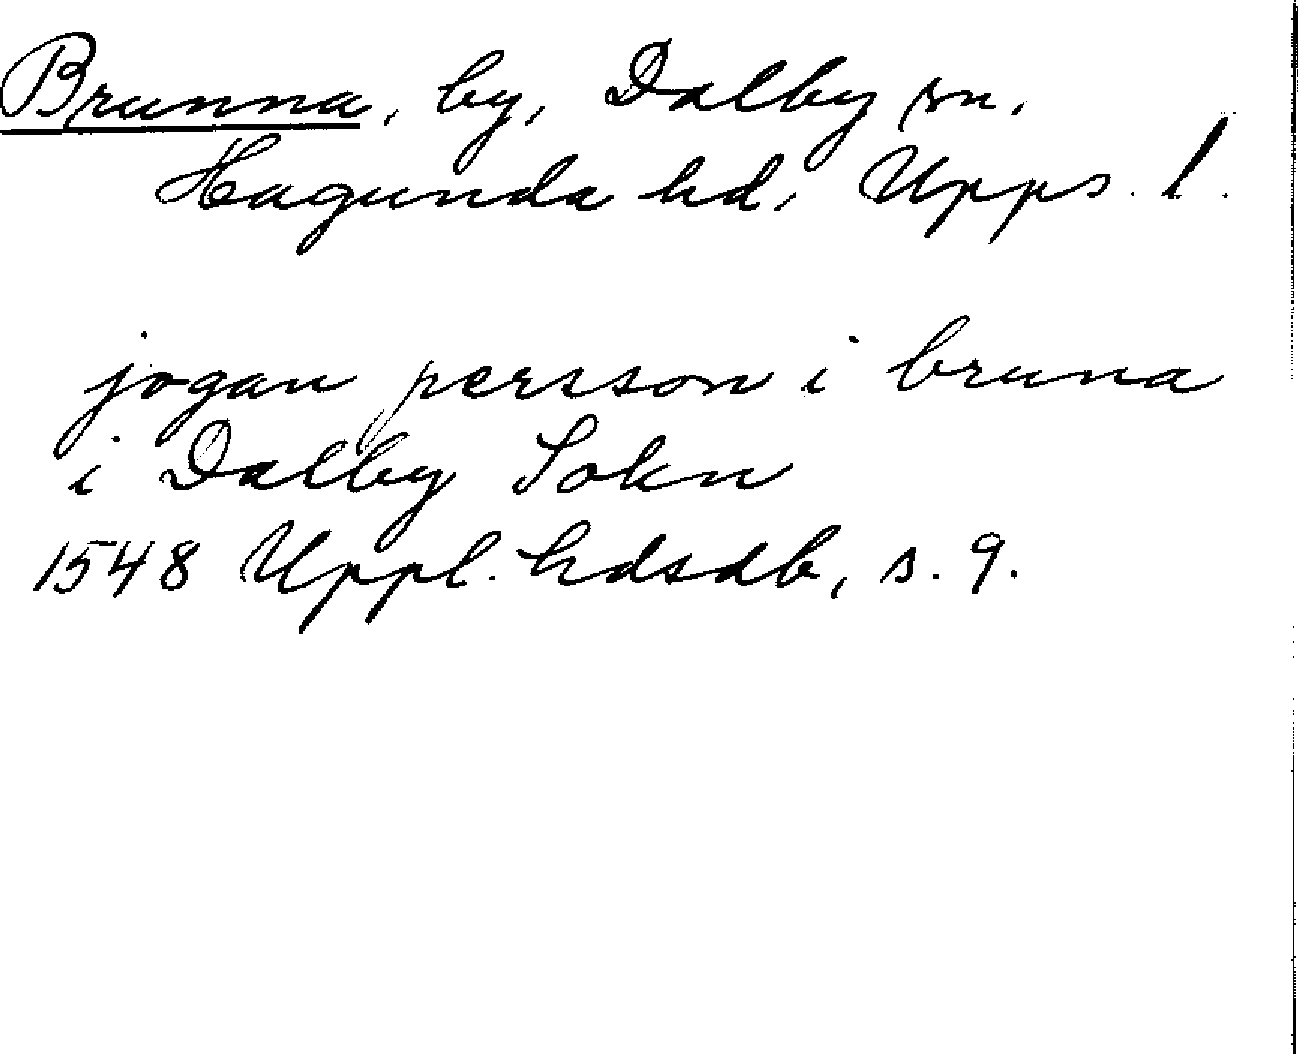 Brunna, by, Dalby sn,
Hagunda hd, Upps. l.
jogan persson i bruna
i Dalby Sokn
1548 Uppl. hdsdb, s. 9.